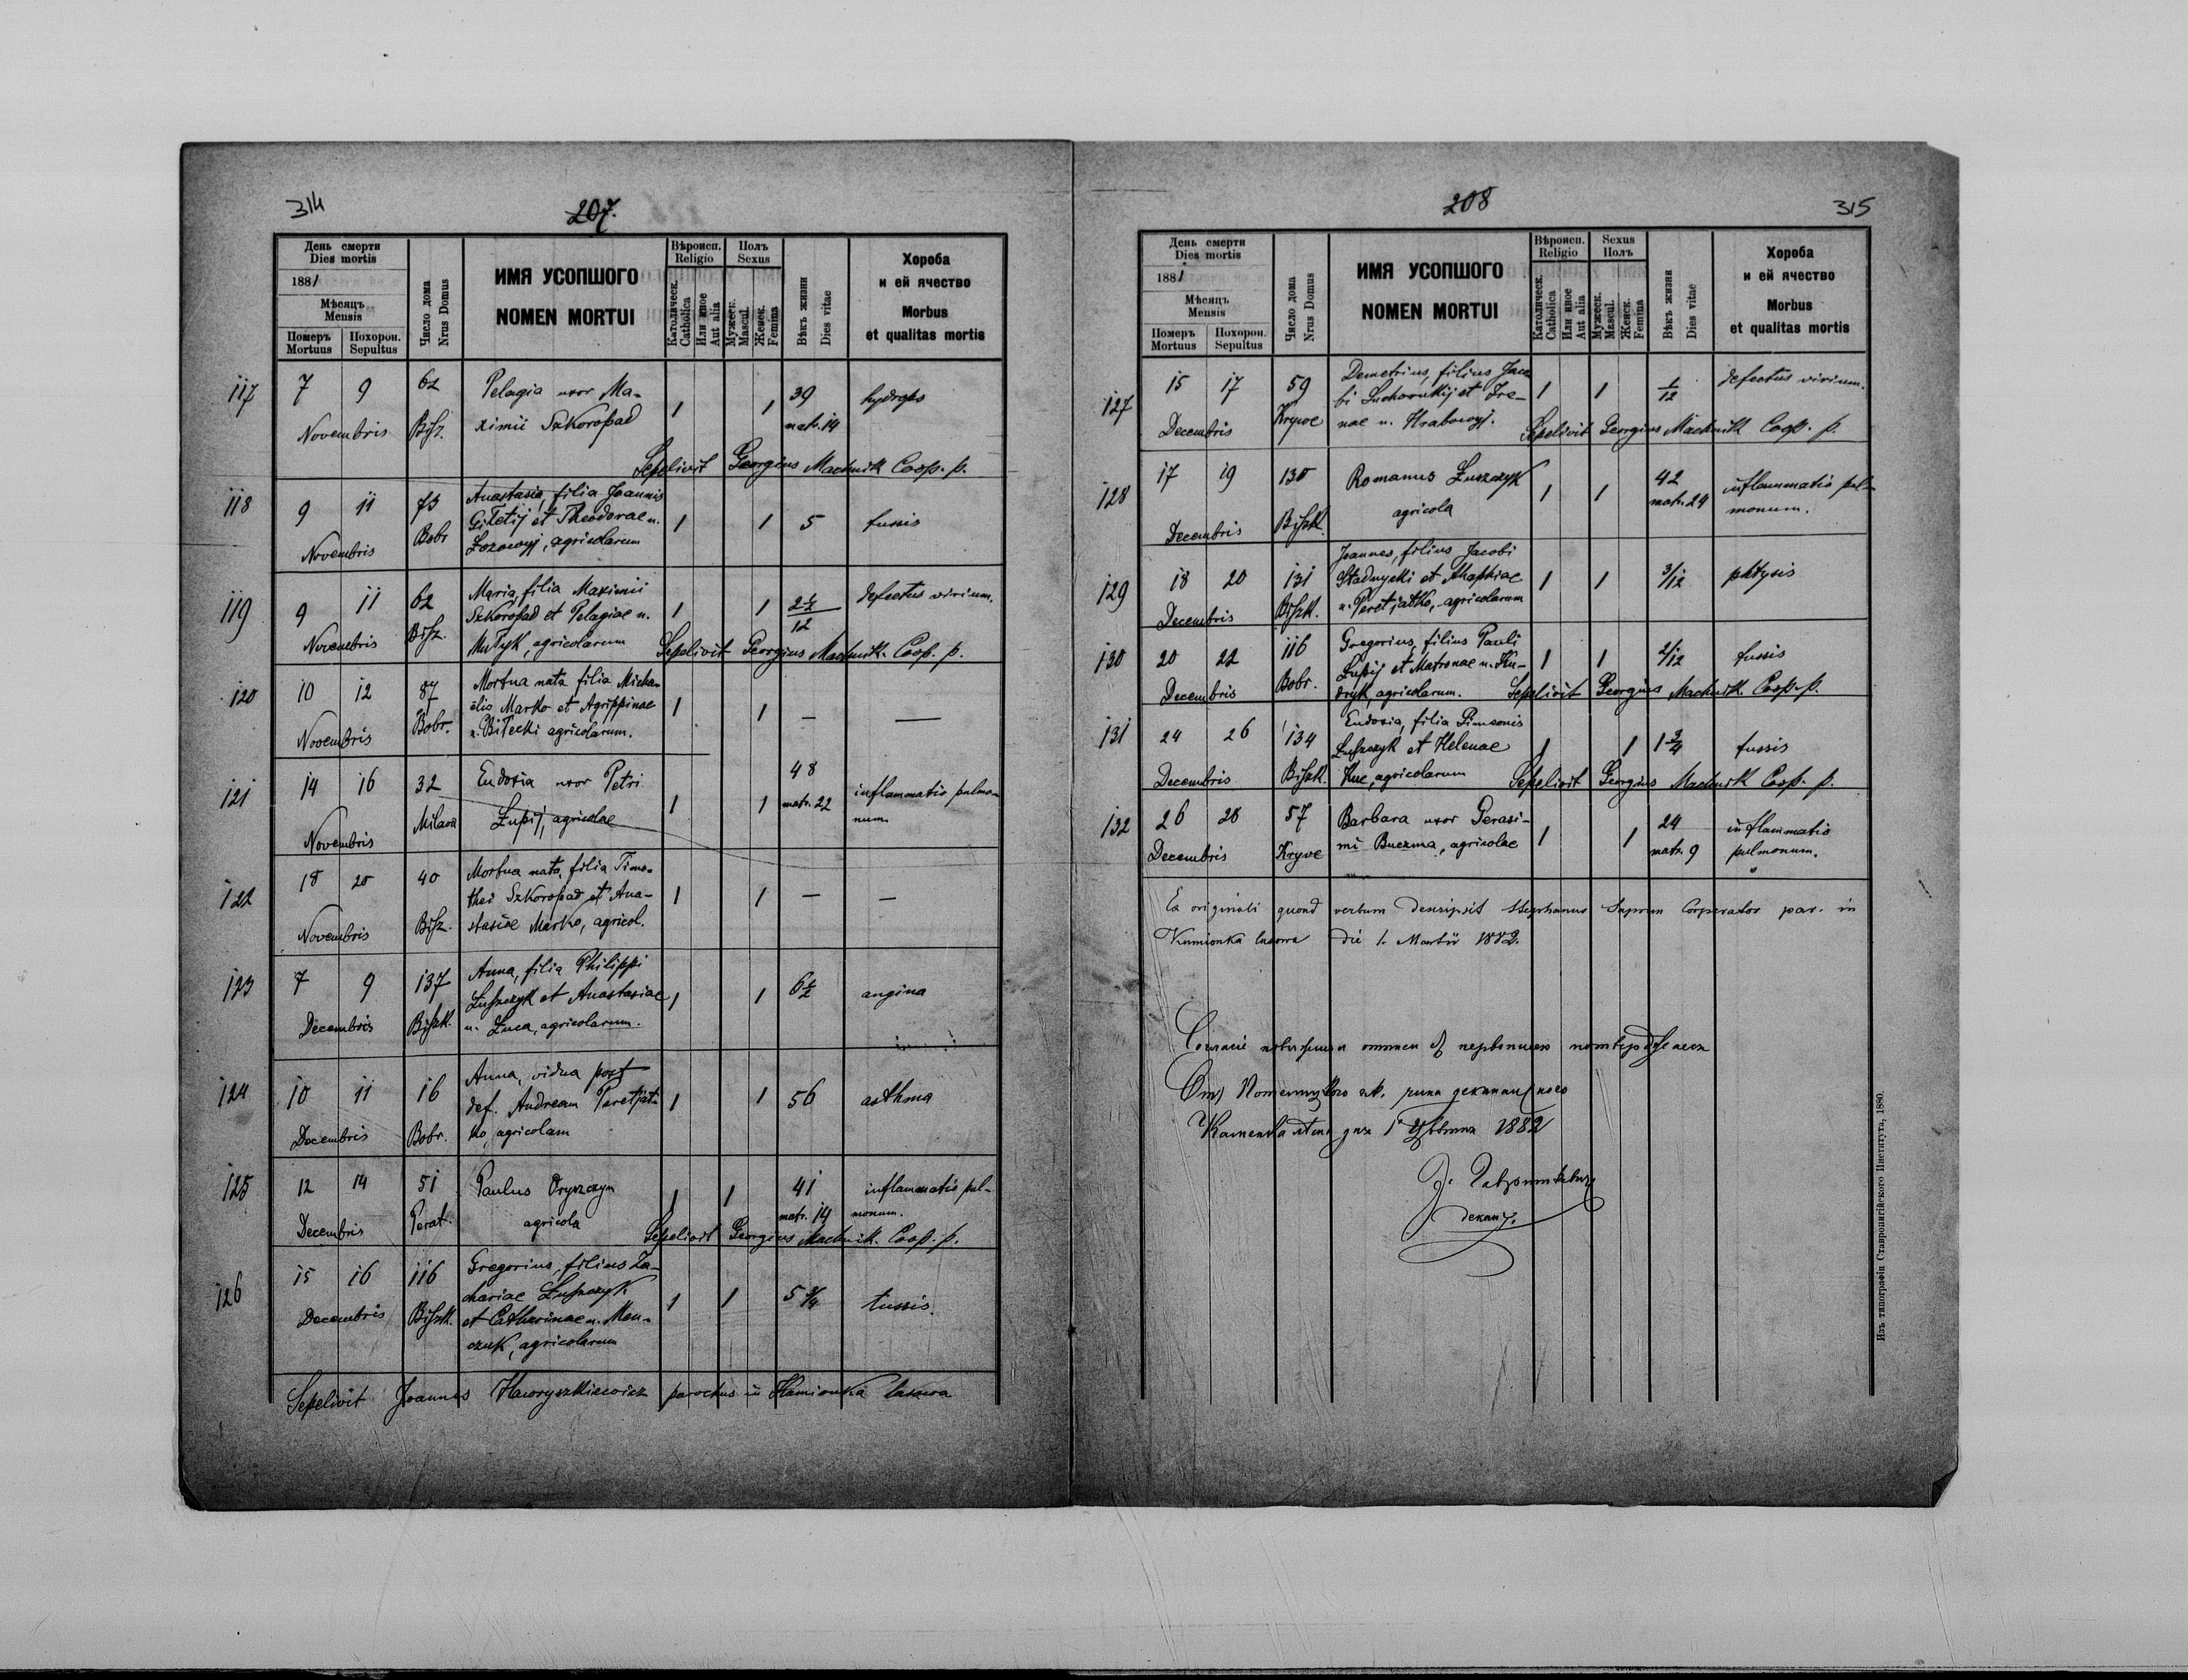 314
207.
День смерти
Dies mortis
1881
Мѣсяцъ
Mensis
Померъ
Mortuus
Похорон.
Sepultus
Число дома
Nrus Domus
ИМЯ УСОПШОГО
NOMEN MORTUI
Вѣроисп.
Religio
Католическ.
Catholica
Или иное
Aut alia
Полъ
Sexus
Мужеск.
Mascul.
Женск.
Femina
Вѣкъ жизни
Dies vitae
Хороба
и ей ячество
Morbus
et qualitas mortis
117 7 9 62 Pelagia uxor Ma- 1 1 39 hydrops
Novembris Bisz. ximii Szkoropad matr. 14
Sepelivit Georgius Machnik Coop. p.
118 9 11 73 Anastasia, filia Joannis
Bobr Giletij et Theodorae n. 1 1 5 tussis
Novembris Łozowyj, agricolarum
119 9 11 62 Maria, filia Maximii defectus virium.
Szkoropad et Pelagiae n. 1 1 2½/12
Novembris Bisz. Mutyk, agricolarum
Sepelivit Georgius Machnik. Coop. p.
120 10 12 87 Mortua nata filia Micha-
Bobr. elis Marko et Agrippinae 1 1 — —
Novembris n. Bilecki agricolarum.
121 14 16 32 Eudoxia uxor Petri 48 inflammatio pulmo-
Milava Łupij, agricolae 1 1 matr. 22 num.
Novembris
122 18 20 40 Mortua nata, filia Timo-
thei Szkoropad et Ana- 1 1 — —
Novembris Bisz. stasiae Marko, agricol.
123 7 9 137 Anna, filia Philippi
Łuszczyk et Anastasiae 1 1 6½ angina
Decembris Biszk. n. Łuca, agricolarum.
124 10 11 16 Anna, vidua post
def. Andream Peretjat- 1 1 56 asthma
Decembris Bobr. ko, agricolam
125 12 14 51 Paulus Oryszczyn 1 1 41 inflammatio pul-
Decembris Perat. agricola matr. 14 monum.
Sepelivit Georgius Machnik. Coop. p.
126 15 16 116 Gregorius, filius Za-
Decembris Biszk. chariae Łuszczyk 1 1 5 ¾ tussis.
et Catharinae n. Men-
czuk, agricolarum
Sepelivit Joannes Hawryszkiewicz parochus in Kamionka lasowa
208
315
День смерти
Dies mortis
1881
Мѣсяцъ
Mensis
Померъ
Mortuus
Похорон.
Sepultus
Число дома
Nrus Domus
ИМЯ УСОПШОГО
NOMEN MORTUI
Вѣроисп.
Religio
Католическ.
Catholica
Или иное
Aut alia
Sexus
Полъ
Мужеск.
Mascul.
Женск.
Femina
Вѣкъ жизни
Dies vitae
Хороба
и ей ячество
Morbus
et qualitas mortis
127 15 17 59 Demetrius, filius Jaco- defectus virium.
bi Suchorukij et Ire- 1 1 1/12
Decembris Krywe nae n. Hrabowyj.
Sepelivit Georgius Machnik Coop. p.
128 17 19 130 Romanus Łuszczyk 1 1 42 inflammatio pul-
agricola matr. 24 monum.
Decembris Biszk.
129 18 20 131 Joannes, filius Jacobi
Stadnycki et Ahaphiae 1 1 3/12 phtysis
Decembris Biszk. n. Peretjatko, agricolarum
130 20 22 116 Gregorius, filius Pauli
Łupij et Matronae n. Ku- 1 1 2/12 tussis
Decembris Bobr. dryk, agricolarum.
Sepelivit Georgius Machnik. Coop. p.
131 24 26 134 Eudoxia, filia Simeonis
Łuszczyk et Helenae 1 1 1¾ tussis
Decembris Biszk. Kuc, agricolarum
Sepelivit Georgius Machnik Coop. p.
132 26 28 57 Barbara uxor Gerasi- 24 inflammatio
Decembris Krywe mi Buczma, agricolae 1 1 matr. 9 pulmonum.
Ex originali quoad verbum descripsit Stephanus Cooperator par. in
Kamionka lasowa die 1. Martii 1882.
дня 1882
декан.
Изъ типографіи Ставропигійского Института, 1880.